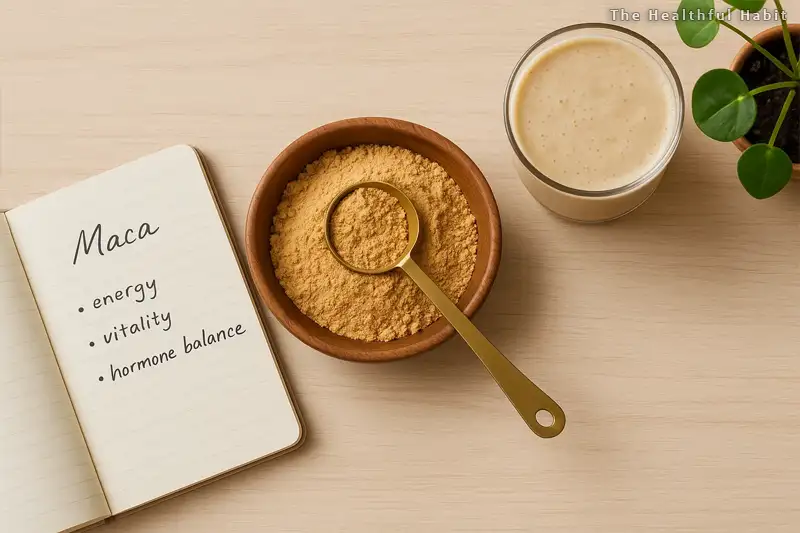 The Healthful Habit
Maca
• energy
• vitality
• hormone balance